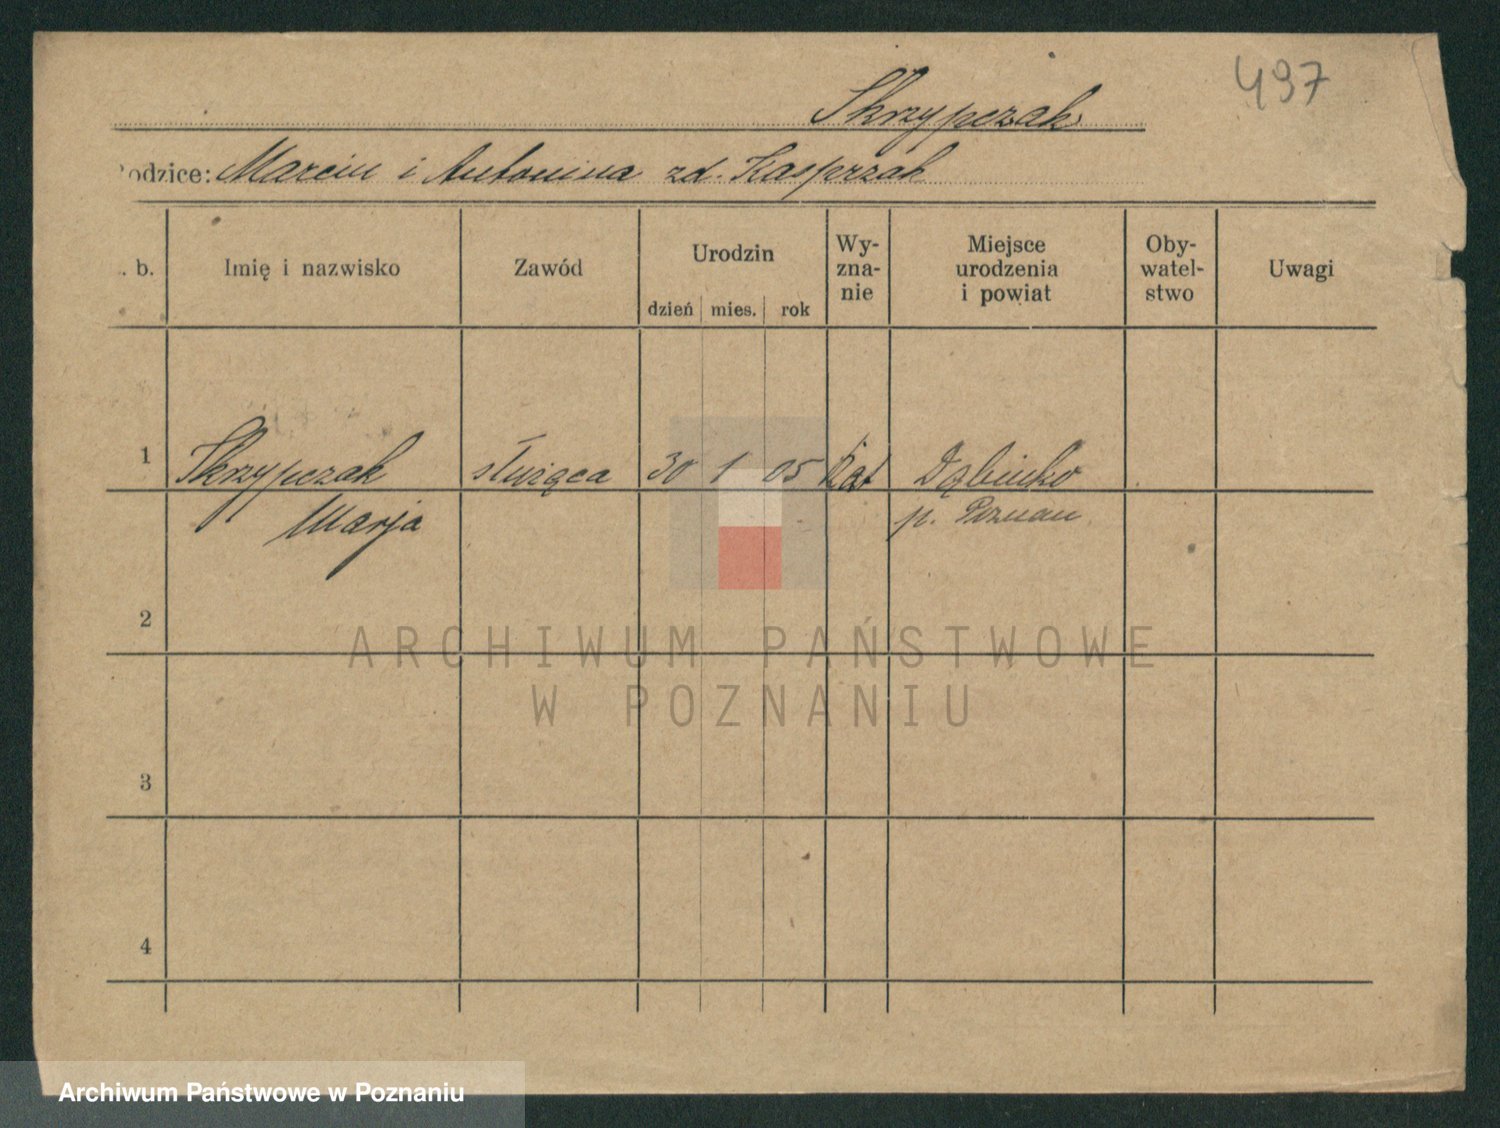 497
Skrzypczak
odzice: Marcin i Antonina zd. Kasprzak
. b.
Imię i nazwisko
Zawód
Urodzin
dzień mies. rok
Wy-
zna-
nie
Miejsce
urodzenia
i powiat
Oby-
watel-
stwo
Uwagi
1 Skrzypczak służąca 30 1 05 Kat Dąbinko
Marja p. Poznań
2
3
4
ARCHIWUM PAŃSTWOWE
W POZNANIU
Archiwum Państwowe w Poznaniu